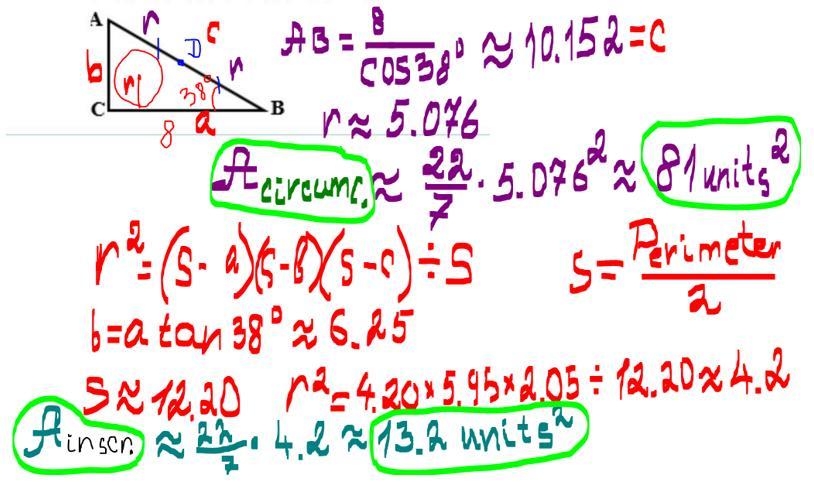 A r D c
b r 38° r
C 8 a B
AB = 8/cos38° ≈ 10.152 = c
r ≈ 5.076
A circumc. ≈ 22/7 · 5.076² ≈ 81 units²
r² = (s - a)(s - b)(s - c) ÷ s
s = Perimeter/2
b = a tan 38° ≈ 6.25
s ≈ 12.20 r² = 4.20 × 5.95 × 2.05 ÷ 12.20 ≈ 4.2
A inscr. ≈ 22/7 · 4.2 ≈ 13.2 units²